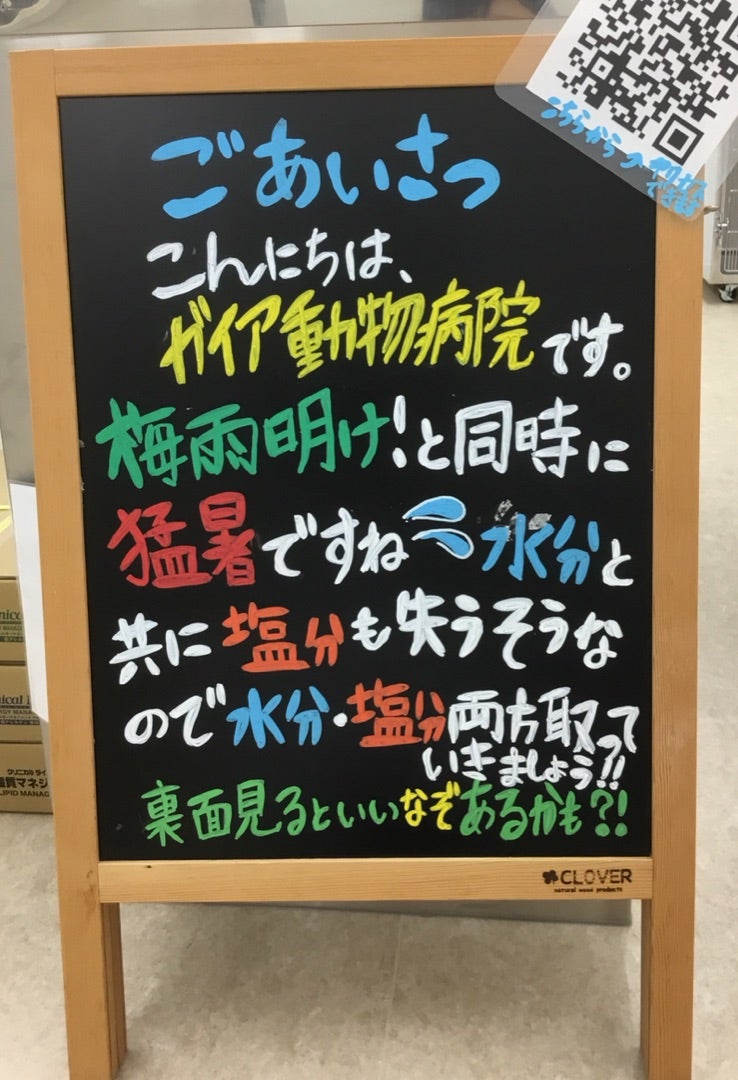 ごあいさつ
こんにちは、
ガイア動物病院です。
梅雨明け!と同時に
猛暑ですね 水分と
共に塩分も失うそうな
ので水分・塩分両方取って
いきましょう!!
裏面見るといいなぞあるかも?!
CLOVER
natural wood products
こちらから
できます
クリニカル ライ
LIPID MANAG